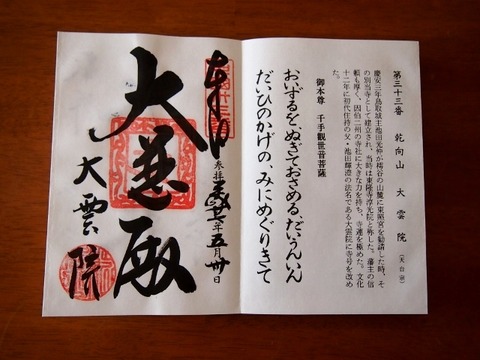 第三十三番 乾向山 大雲院 (天台宗)
慶安三年鳥取城主池田光仲が樗谷の山麓に東照宮を勧請した時、そ
の別当寺として建立され、当時は東隆寺淳光院と称した。藩主の信
頼も厚く、因伯二州の寺社に大きな力を持ち、寺運を極めた。文化
十二年に初代住持の父・池田輝澄の法名である大雲院に寺号を改め
た。
御本尊 千手観世音菩薩
おいずるを、ぬぎておさめる、だいうんいん
だいひのかげの、みにめぐりきて
奉拝
参拝 年五月卅日
大悲殿
大雲院